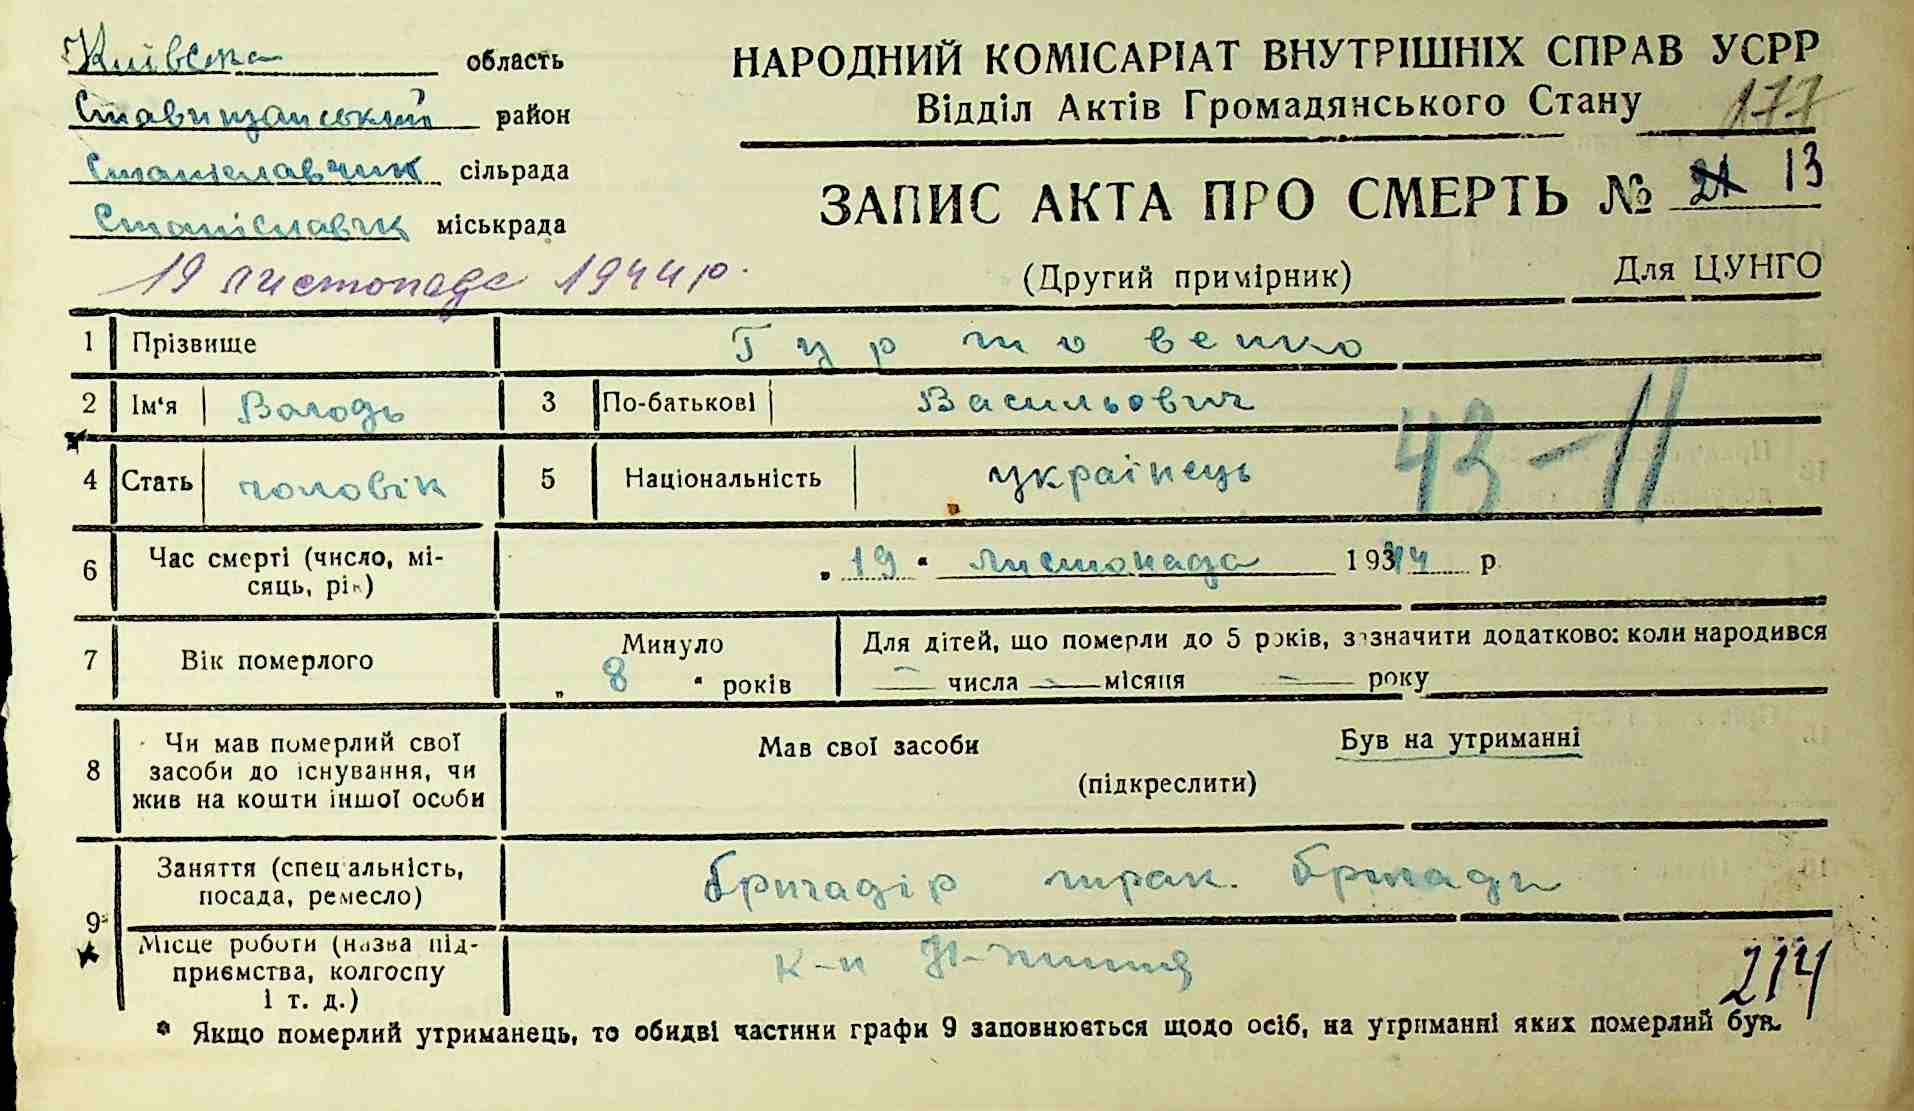 Київська область
Ставищанський район
Станіславчик сільрада
Станіславчик міськрада
19 листопада 1944 р.
НАРОДНИЙ КОМІСАРІАТ ВНУТРІШНІХ СПРАВ УСРР
Відділ Актів Громадянського Стану
177
ЗАПИС АКТА ПРО СМЕРТЬ № 21 13
(Другий примірник) Для ЦУНГО
1 Прізвище Гуртовенко
2 Ім'я Володь 3 По-батькові Васильович
43-11
4 Стать чоловік 5 Національність українець
6 Час смерті (число, мі-
сяць, рік)
„ 19 “ листопада 1944 р.
7 Вік померлого
Минуло
„ 8 “ років
Для дітей, що померли до 5 років, зазначити додатково: коли народився
— числа — місяця — року
8 Чи мав померлий свої
засоби до існування, чи
жив на кошти іншої особи
Мав свої засоби Був на утриманні
(підкреслити)
9 Заняття (спеціальність,
посада, ремесло)
бригадір трак. бригади
Місце роботи (назва під-
приємства, колгоспу
і т. д.)
к-п
214
* Якщо померлий утриманець, то обидві частини графи 9 заповнюється щодо осіб, на утриманні яких померлий був.